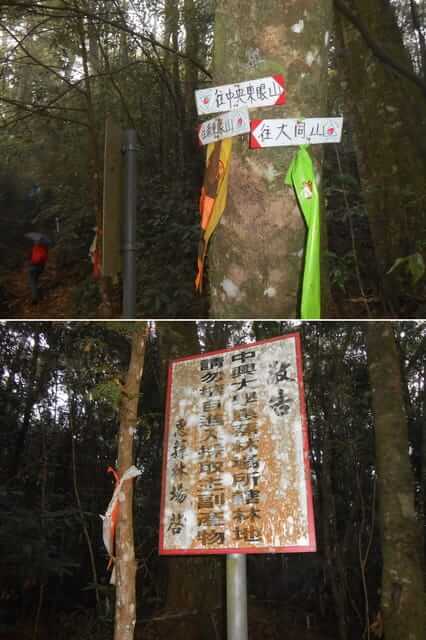 往中央東眼山
往東眼山
往大同山
敬告
中興大學惠蓀林場所轄林地
請勿擅自進入採取正副產物
惠蓀林場啓